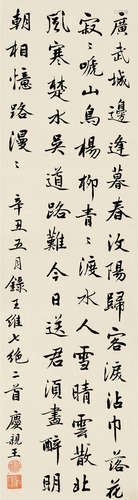 廣武城邊逢暮春汶陽歸客淚沾巾落花
寂〻啼山鳥楊柳青〻渡水人雪晴雲散北
風寒楚水吳道路難今日送君須盡醉明
朝相憶路漫〻 辛丑五月錄王維七絕二首 慶親王